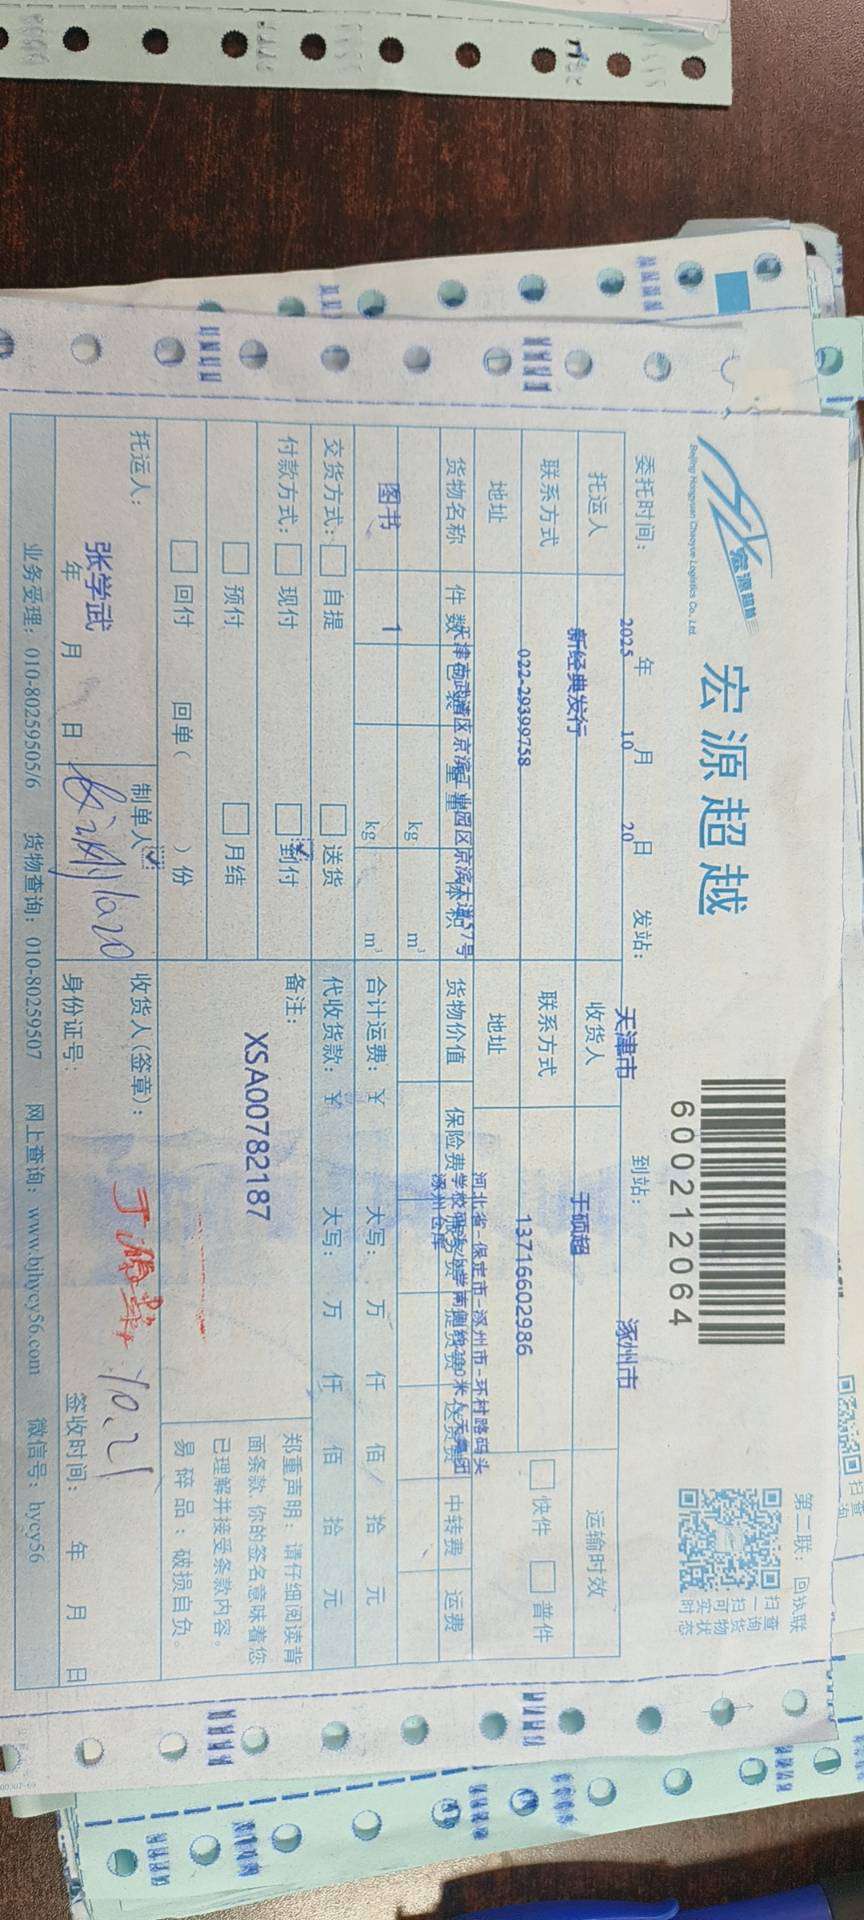 宏源超越
Beijing Hongyuan Chaoyue Logistics Co., Ltd.
宏源超越
6000212064
第二联：回执联
扫一扫可实时
查询货物状态
委托时间： 2025 年 10 月 20 日 发站： 天津市 到站： 涿州市
托运人 新经典发行 收货人 于硕超 运输时效
联系方式 022-29399758 联系方式 13716602986 快件 普件
地址 天津市武清区京滨工业园区京滨大道57号 地址 河北省-保定市-涿州市-环村路码头
涿州仓库
货物名称 件数 包装 重量 体积 货物价值 保险费 提货费 送货费 中转费 运费
kg m³
图书 1 kg m³ 合计运费：￥ 大写： 万 仟 佰 拾 元
交货方式： 自提 送货 代收货款：￥ 大写： 万 仟 佰 拾 元
付款方式： 现付 到付 备注：
预付 月结
回付 回单（ ）份
XSA00782187
郑重声明：请仔细阅读背
面条款，你的签名意味着您
已理解并接受条款内容。
易碎品：破损自负。
托运人： 制单人： 收货人（签章）：
张学武 1020 10.21
年 月 日 身份证号： 签收时间： 年 月 日
业务受理：010-80259505/6 货物查询：010-80259507 网上查询：www.bjhycy56.com 微信号：hycy56